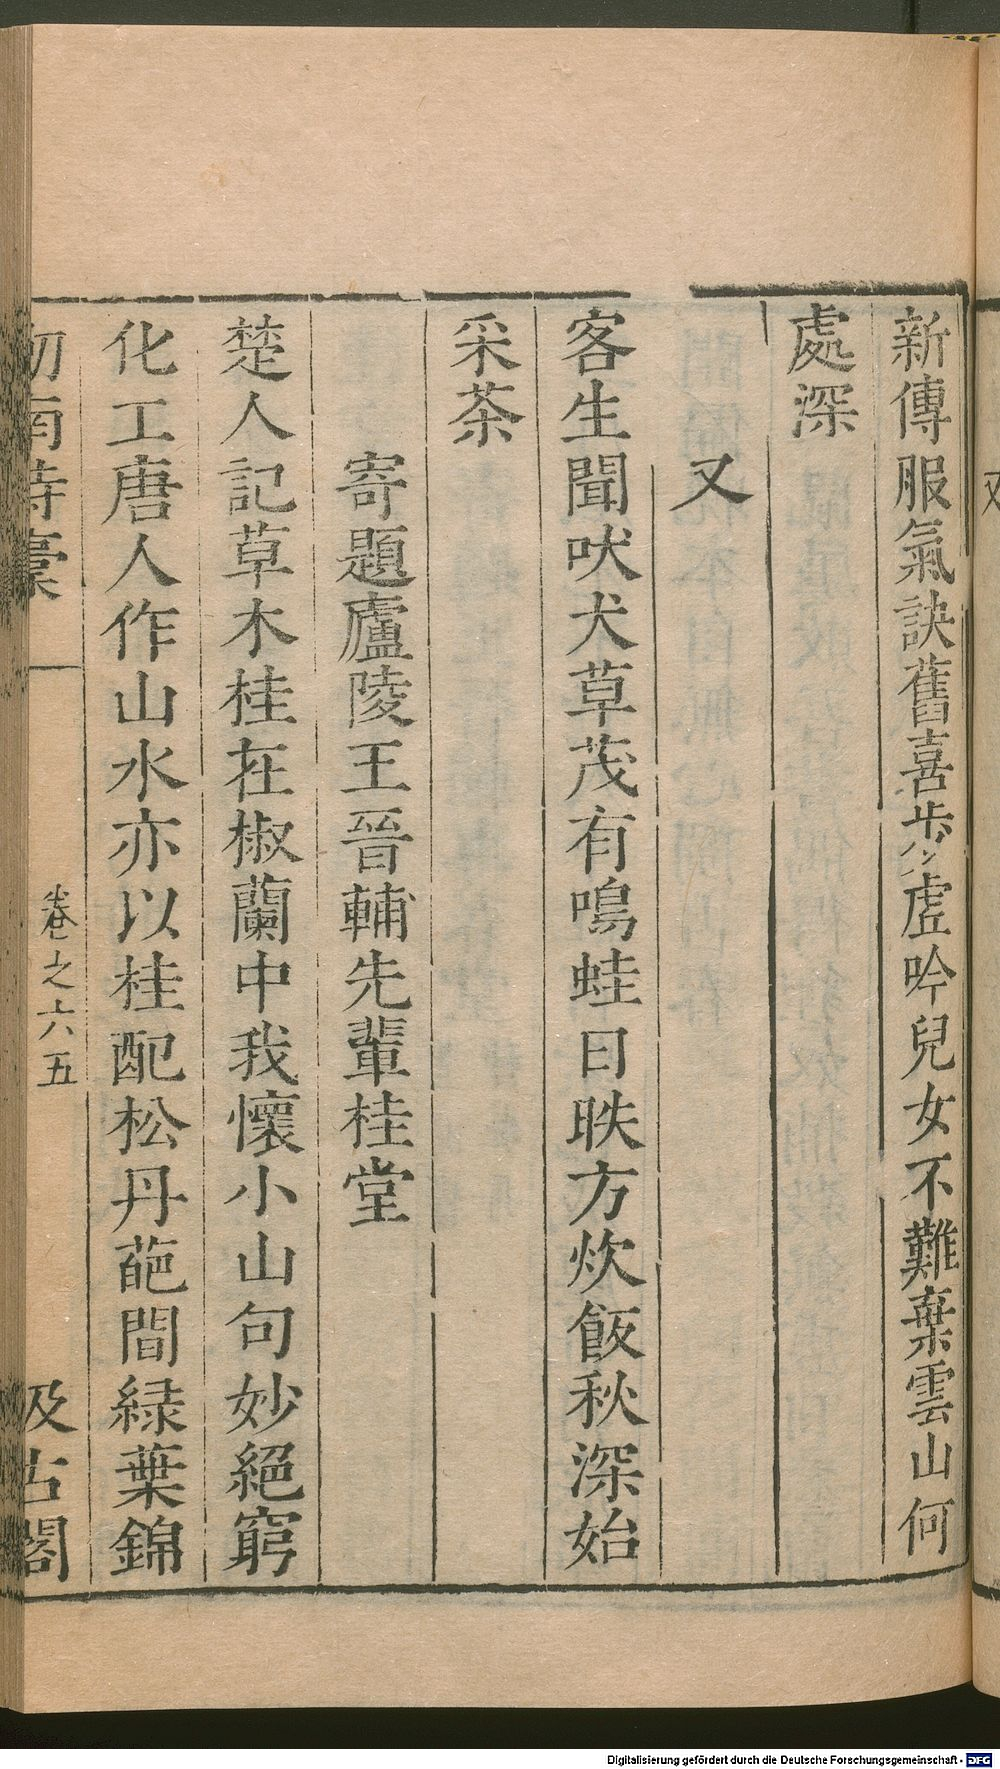 新傳服氣訣舊喜步虛吟兒女不難棄雲山何
處深
又
客生聞吠犬草茂有鳴蛙日昳方炊飯秋深始
采茶
寄題廬陵王晉輔先輩桂堂
楚人記草木桂在椒蘭中我懷小山句妙絕窮
化工唐人作山水亦以桂配松丹葩間緑葉錦
劒南詩稾
卷之六五
汲古閣
Digitalisierung gefördert durch die Deutsche Forschungsgemeinschaft - DFG